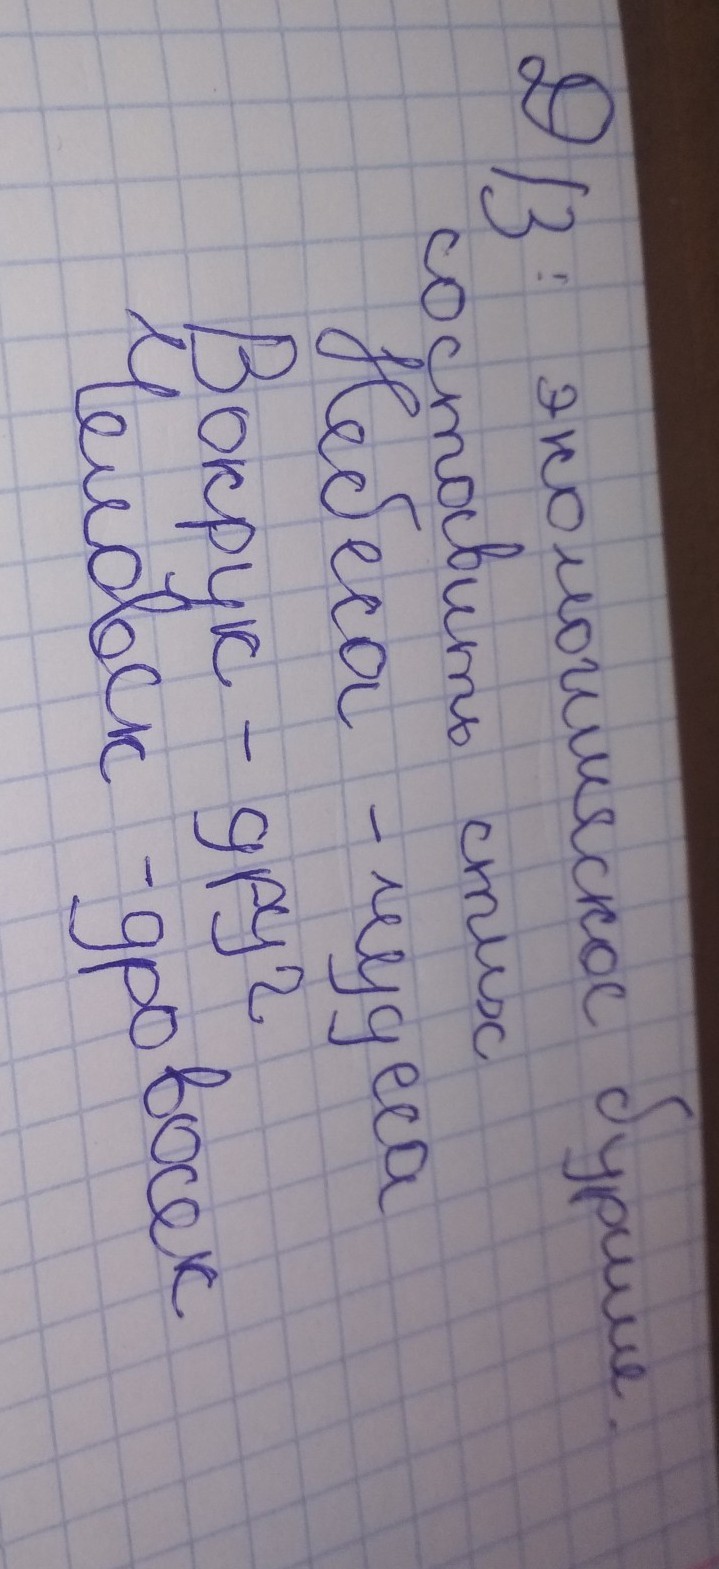 Д/З: экологическое буриме.
составить стих
Небеса - чудеса
Вокрук - друг
Человек - дровосек